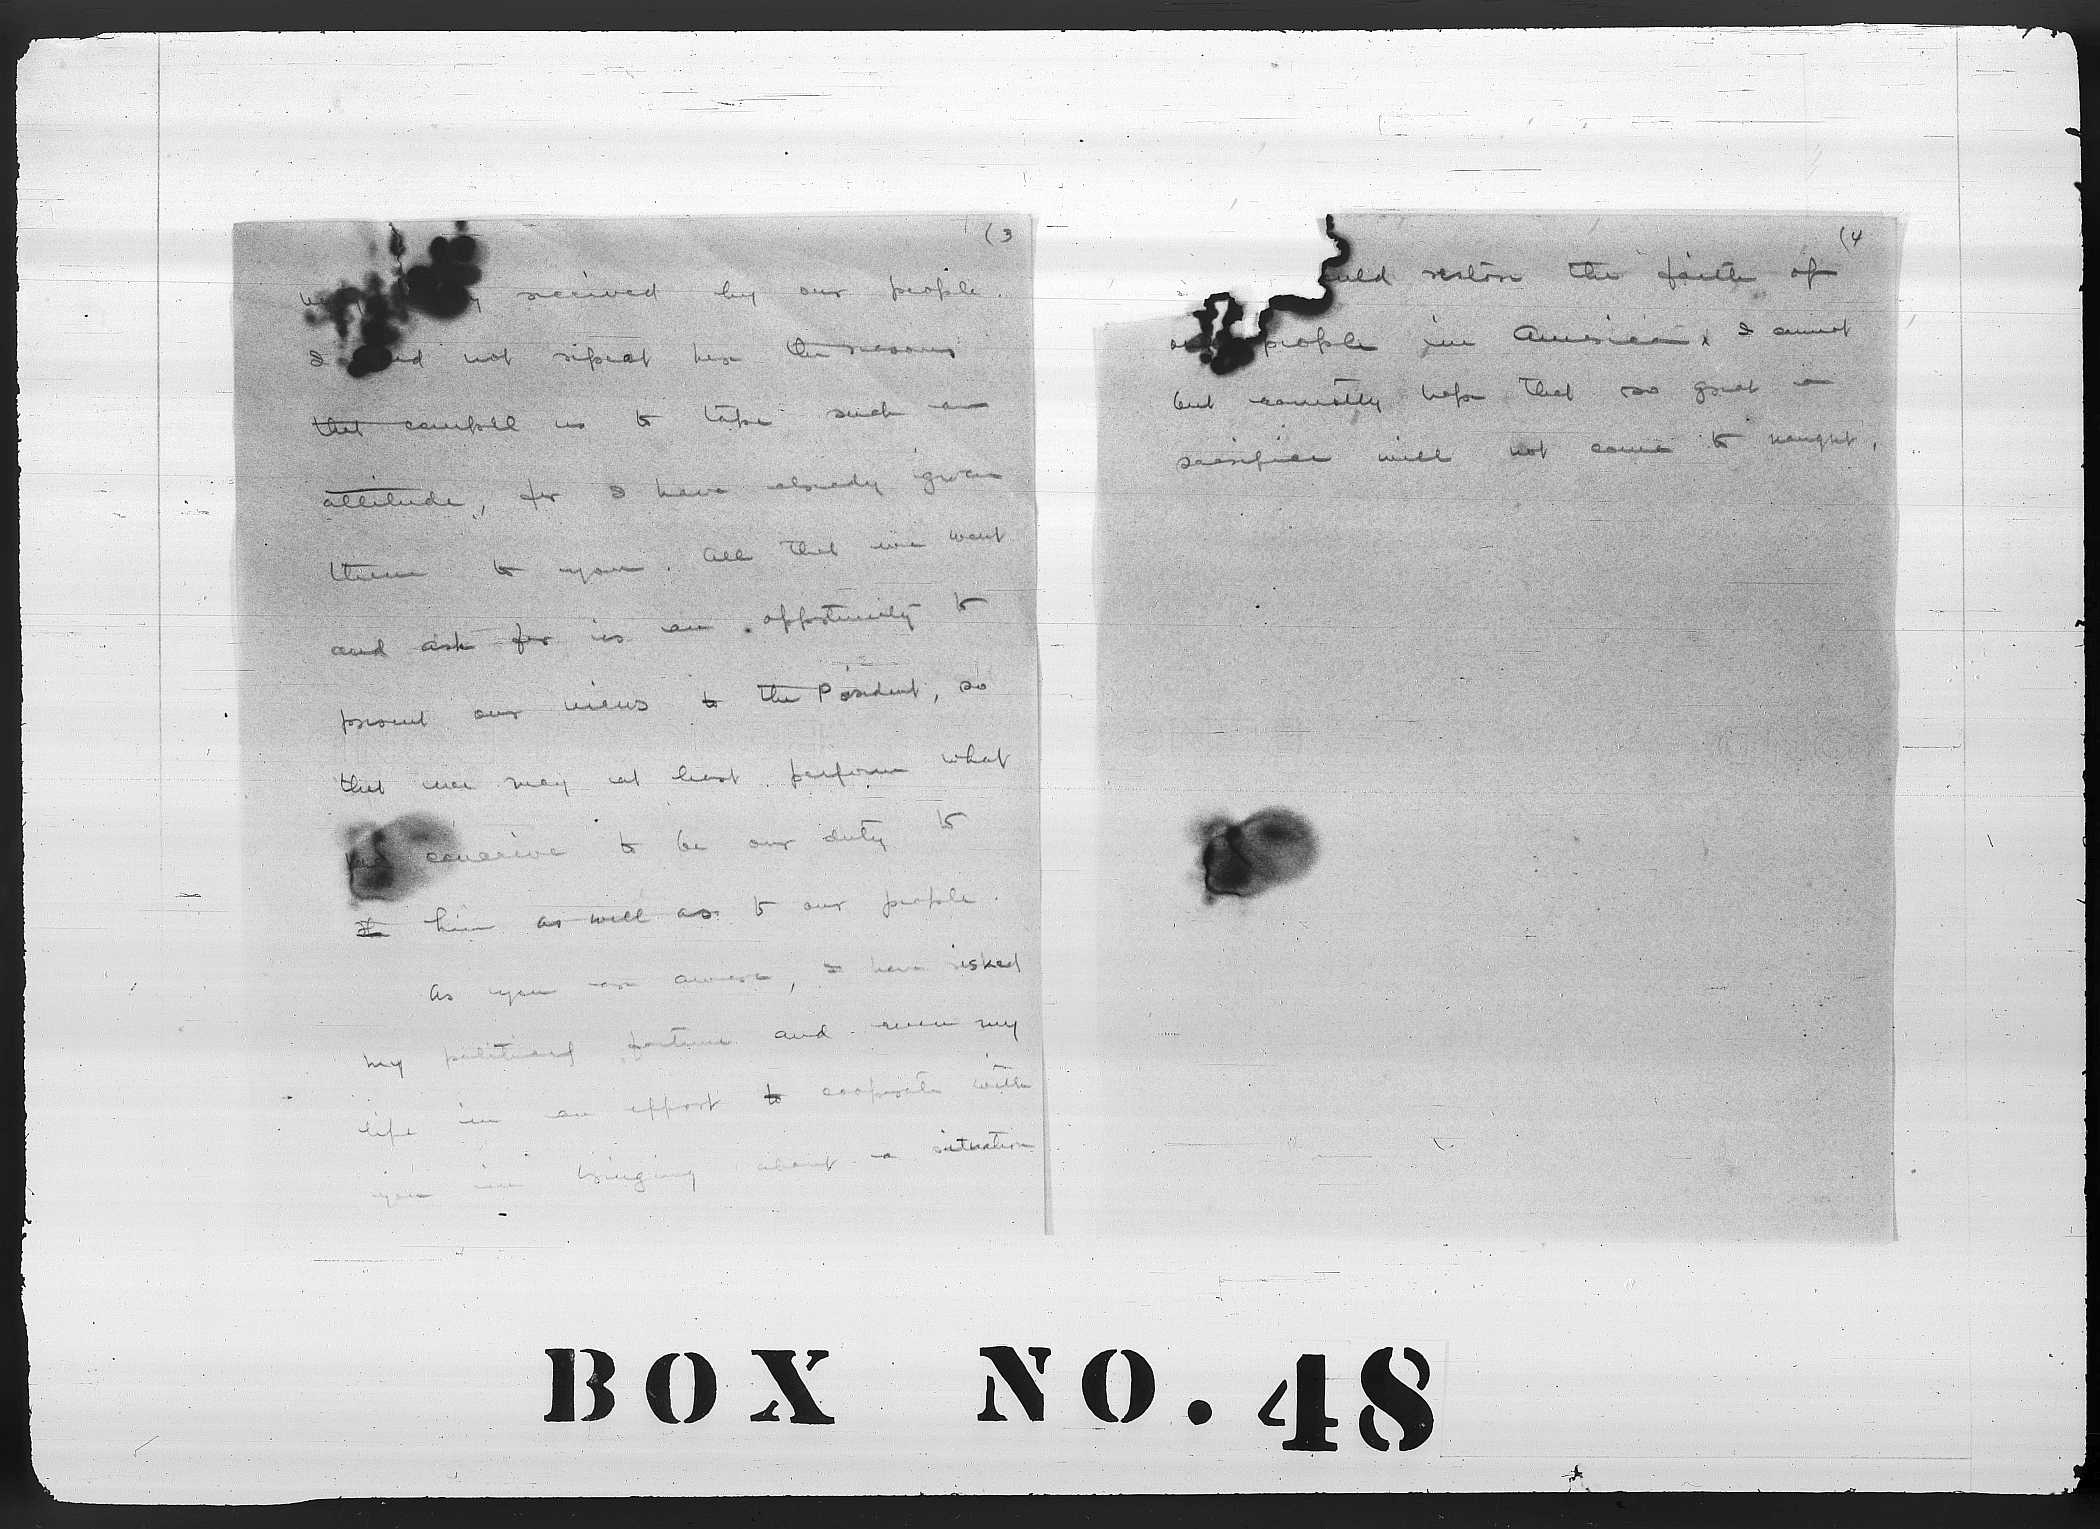 (3
received by our people.
I not repeat here the reasons
that compell us to take such an
attitude, for I have already given
them to you. All that we want
and ask for is an opportunity to
present our views to the President, so
that we may at least perform what
we conceive to be our duty to
him as well as to our people.
As you are aware, I have risked
my political fortune and even my
life in an effort to cooperate with
you in bringing about a situation
(4
could restore the faith of
our people in America. I cannot
but earnestly hope that so great a
sacrifice will not come to naught.
BOX NO. 48